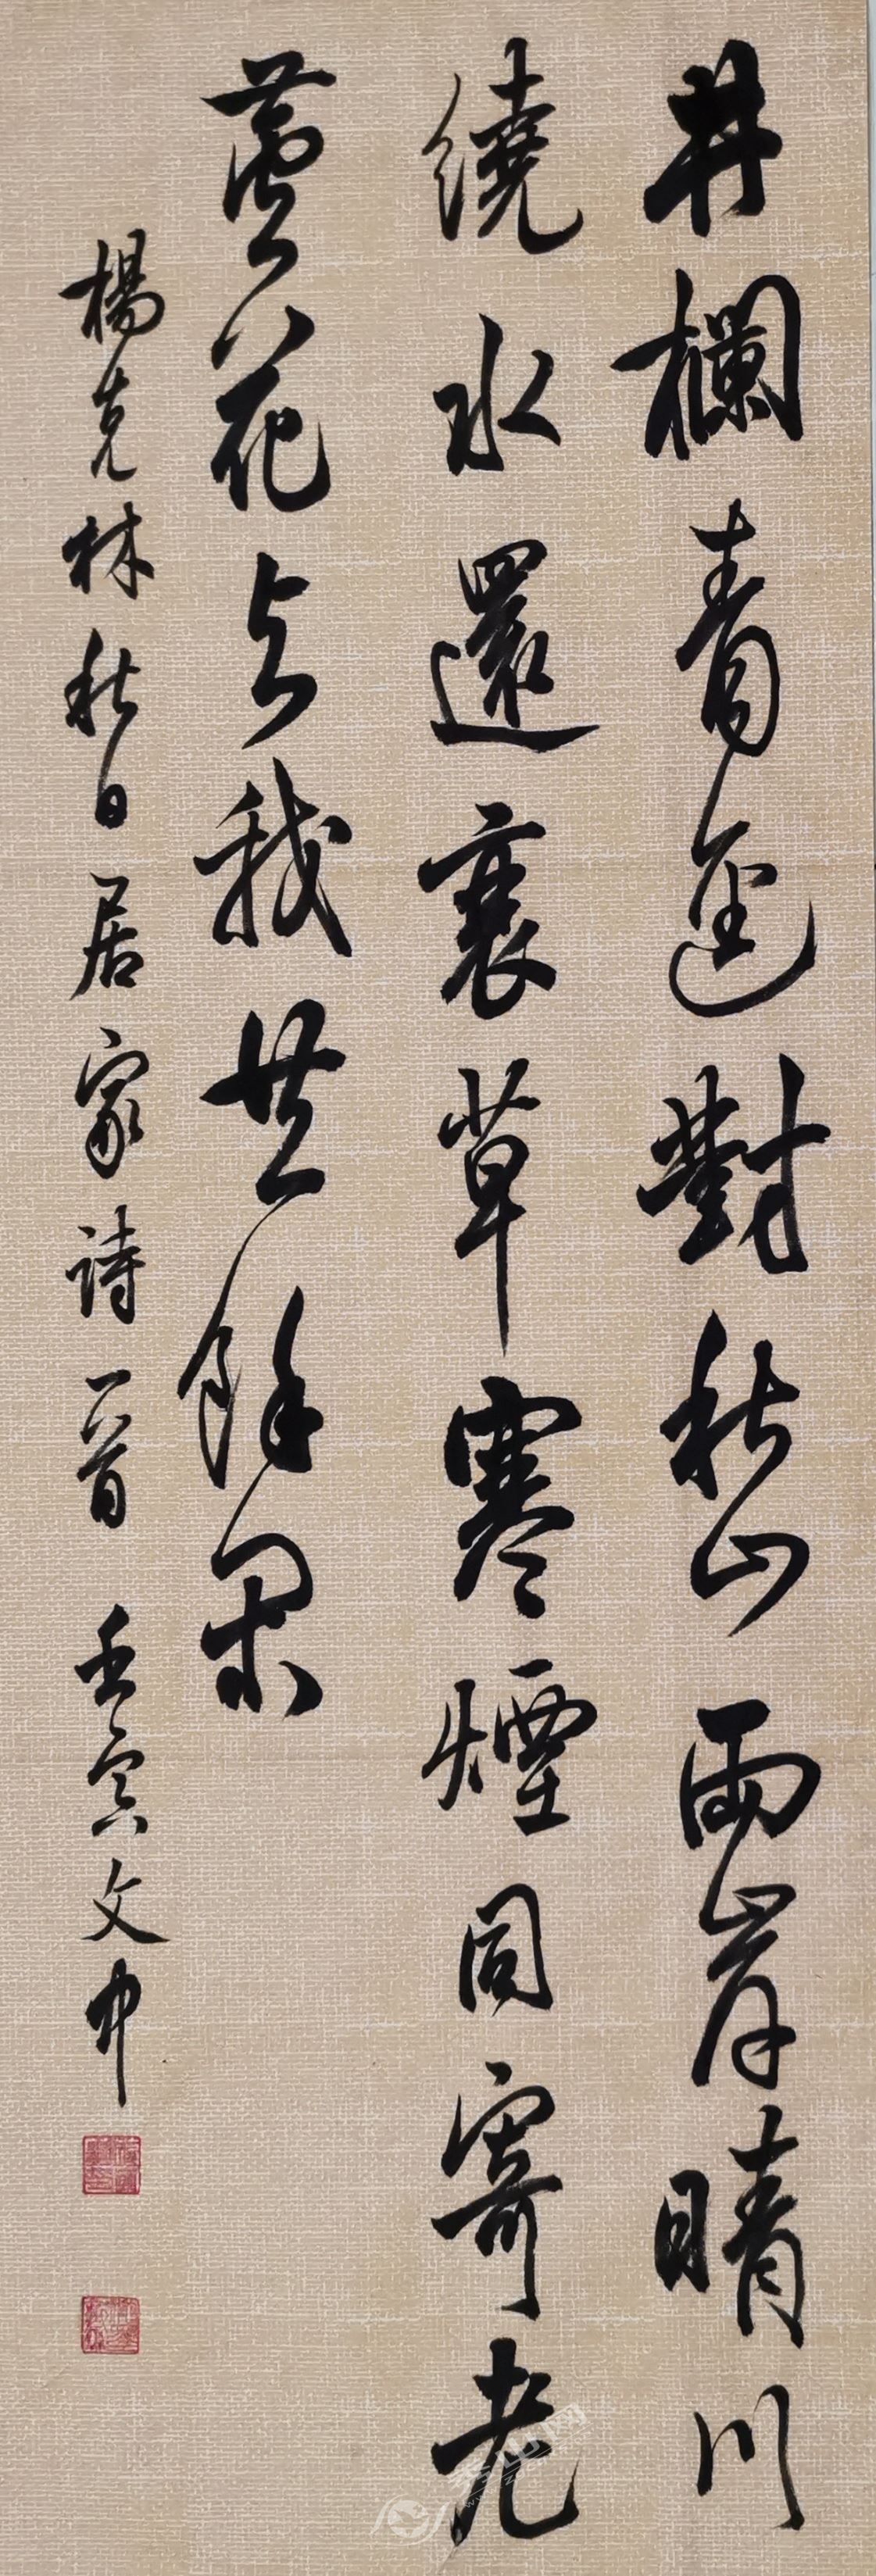 井欄青逕對秋山兩岸晴川
繞水還衰草寒煙同寄老
蘆花与我共餘閑
楊克林秋日居家詩一首 壬寅文中